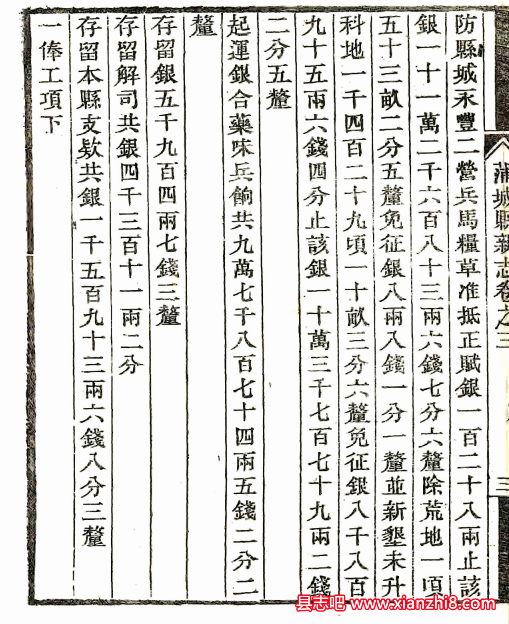 蒲城縣新志卷之三
三
防縣城永豐二營兵馬糧草准抵正賦銀一百二十八兩止該
銀一十一萬二千六百八十三兩六錢七分六釐除荒地一頃
五十三畝二分五釐免征銀八兩八錢一分一釐並新墾未升
科地一千四百二十九頃一十畝三分六釐免征銀八千八百
九十五兩六錢四分止該銀一十萬三千七百七十九兩二錢
二分五釐
起運銀合藥味兵餉共九萬七千八百七十四兩五錢二分二
釐
存留銀五千九百四兩七錢三釐
存留解司共銀四千三百十一兩二分
存留本縣支欵共銀一千五百九十三兩六錢八分三釐
一俸工項下
县志吧 www.xianzhi8.com